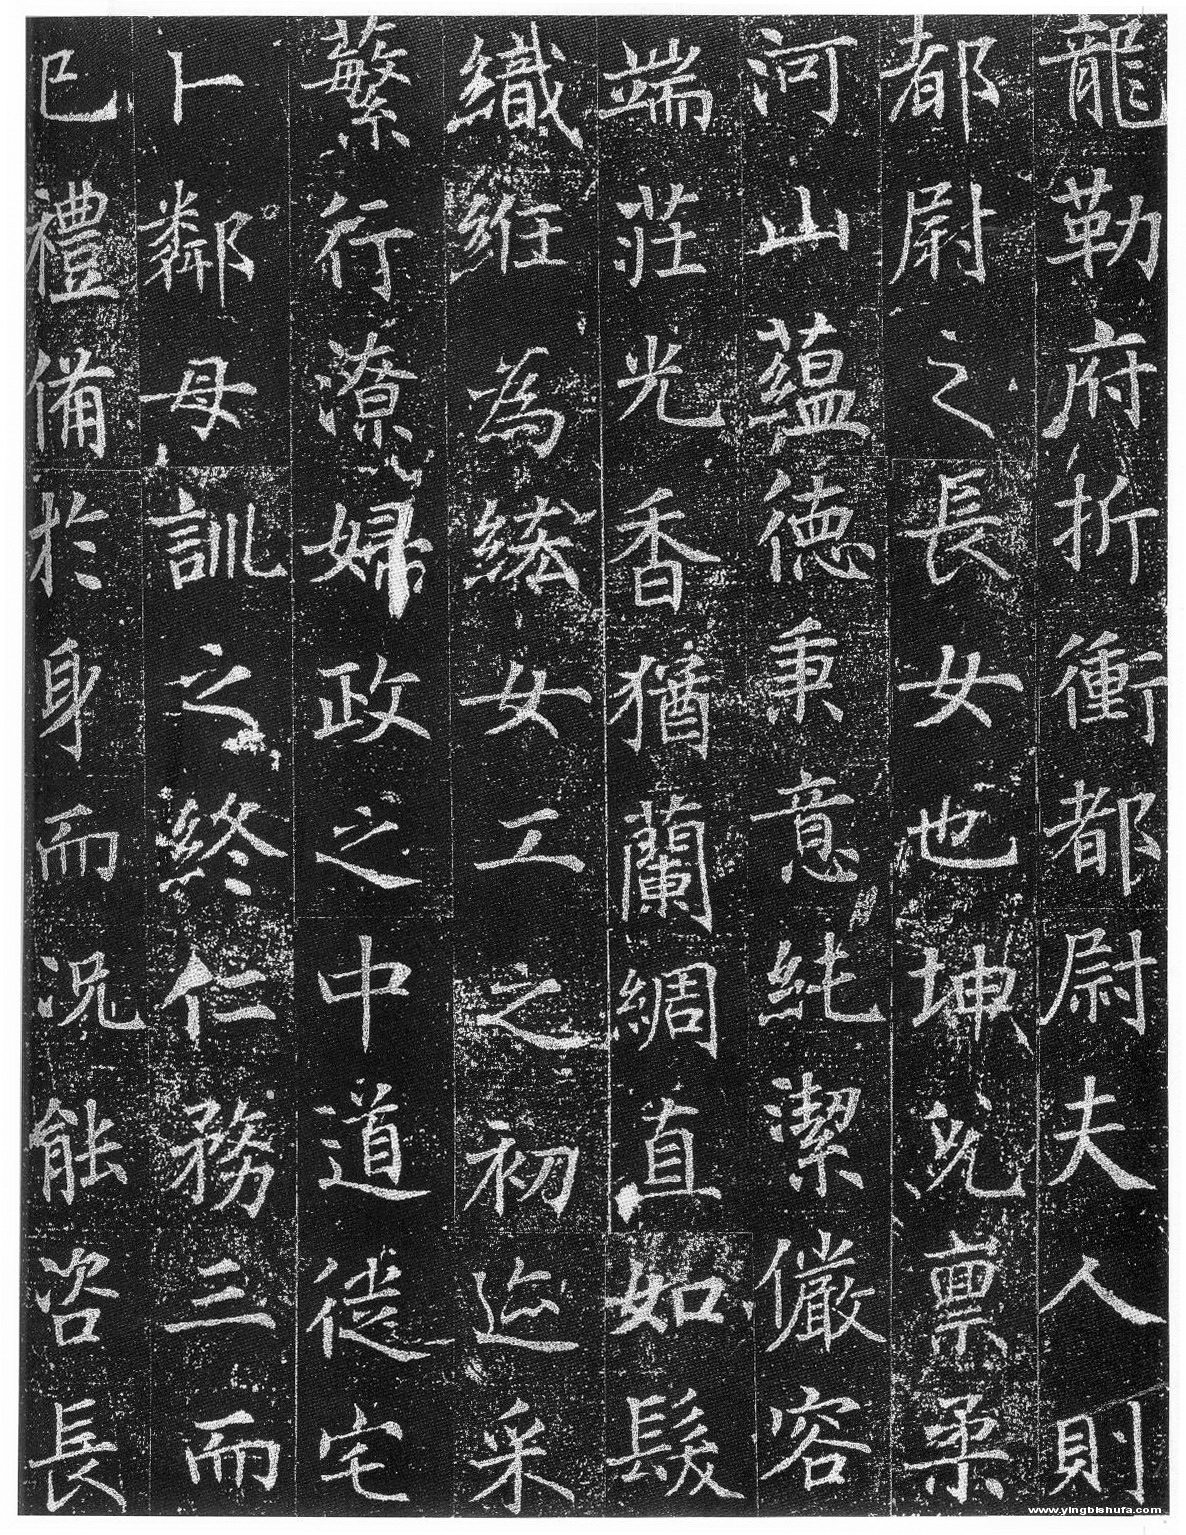 龍勒府折衝都尉夫人則
都尉之長女也坤皃禀柔
河山蘊德秉意純潔儼容
端莊光香猶蘭綢直如髮
織絍為綉女工之初迨采
蘩行潦婦政之中道徙宅
卜鄰母訓之終仁務三而
已禮備於身而況能咨長
www.yingbishufa.com